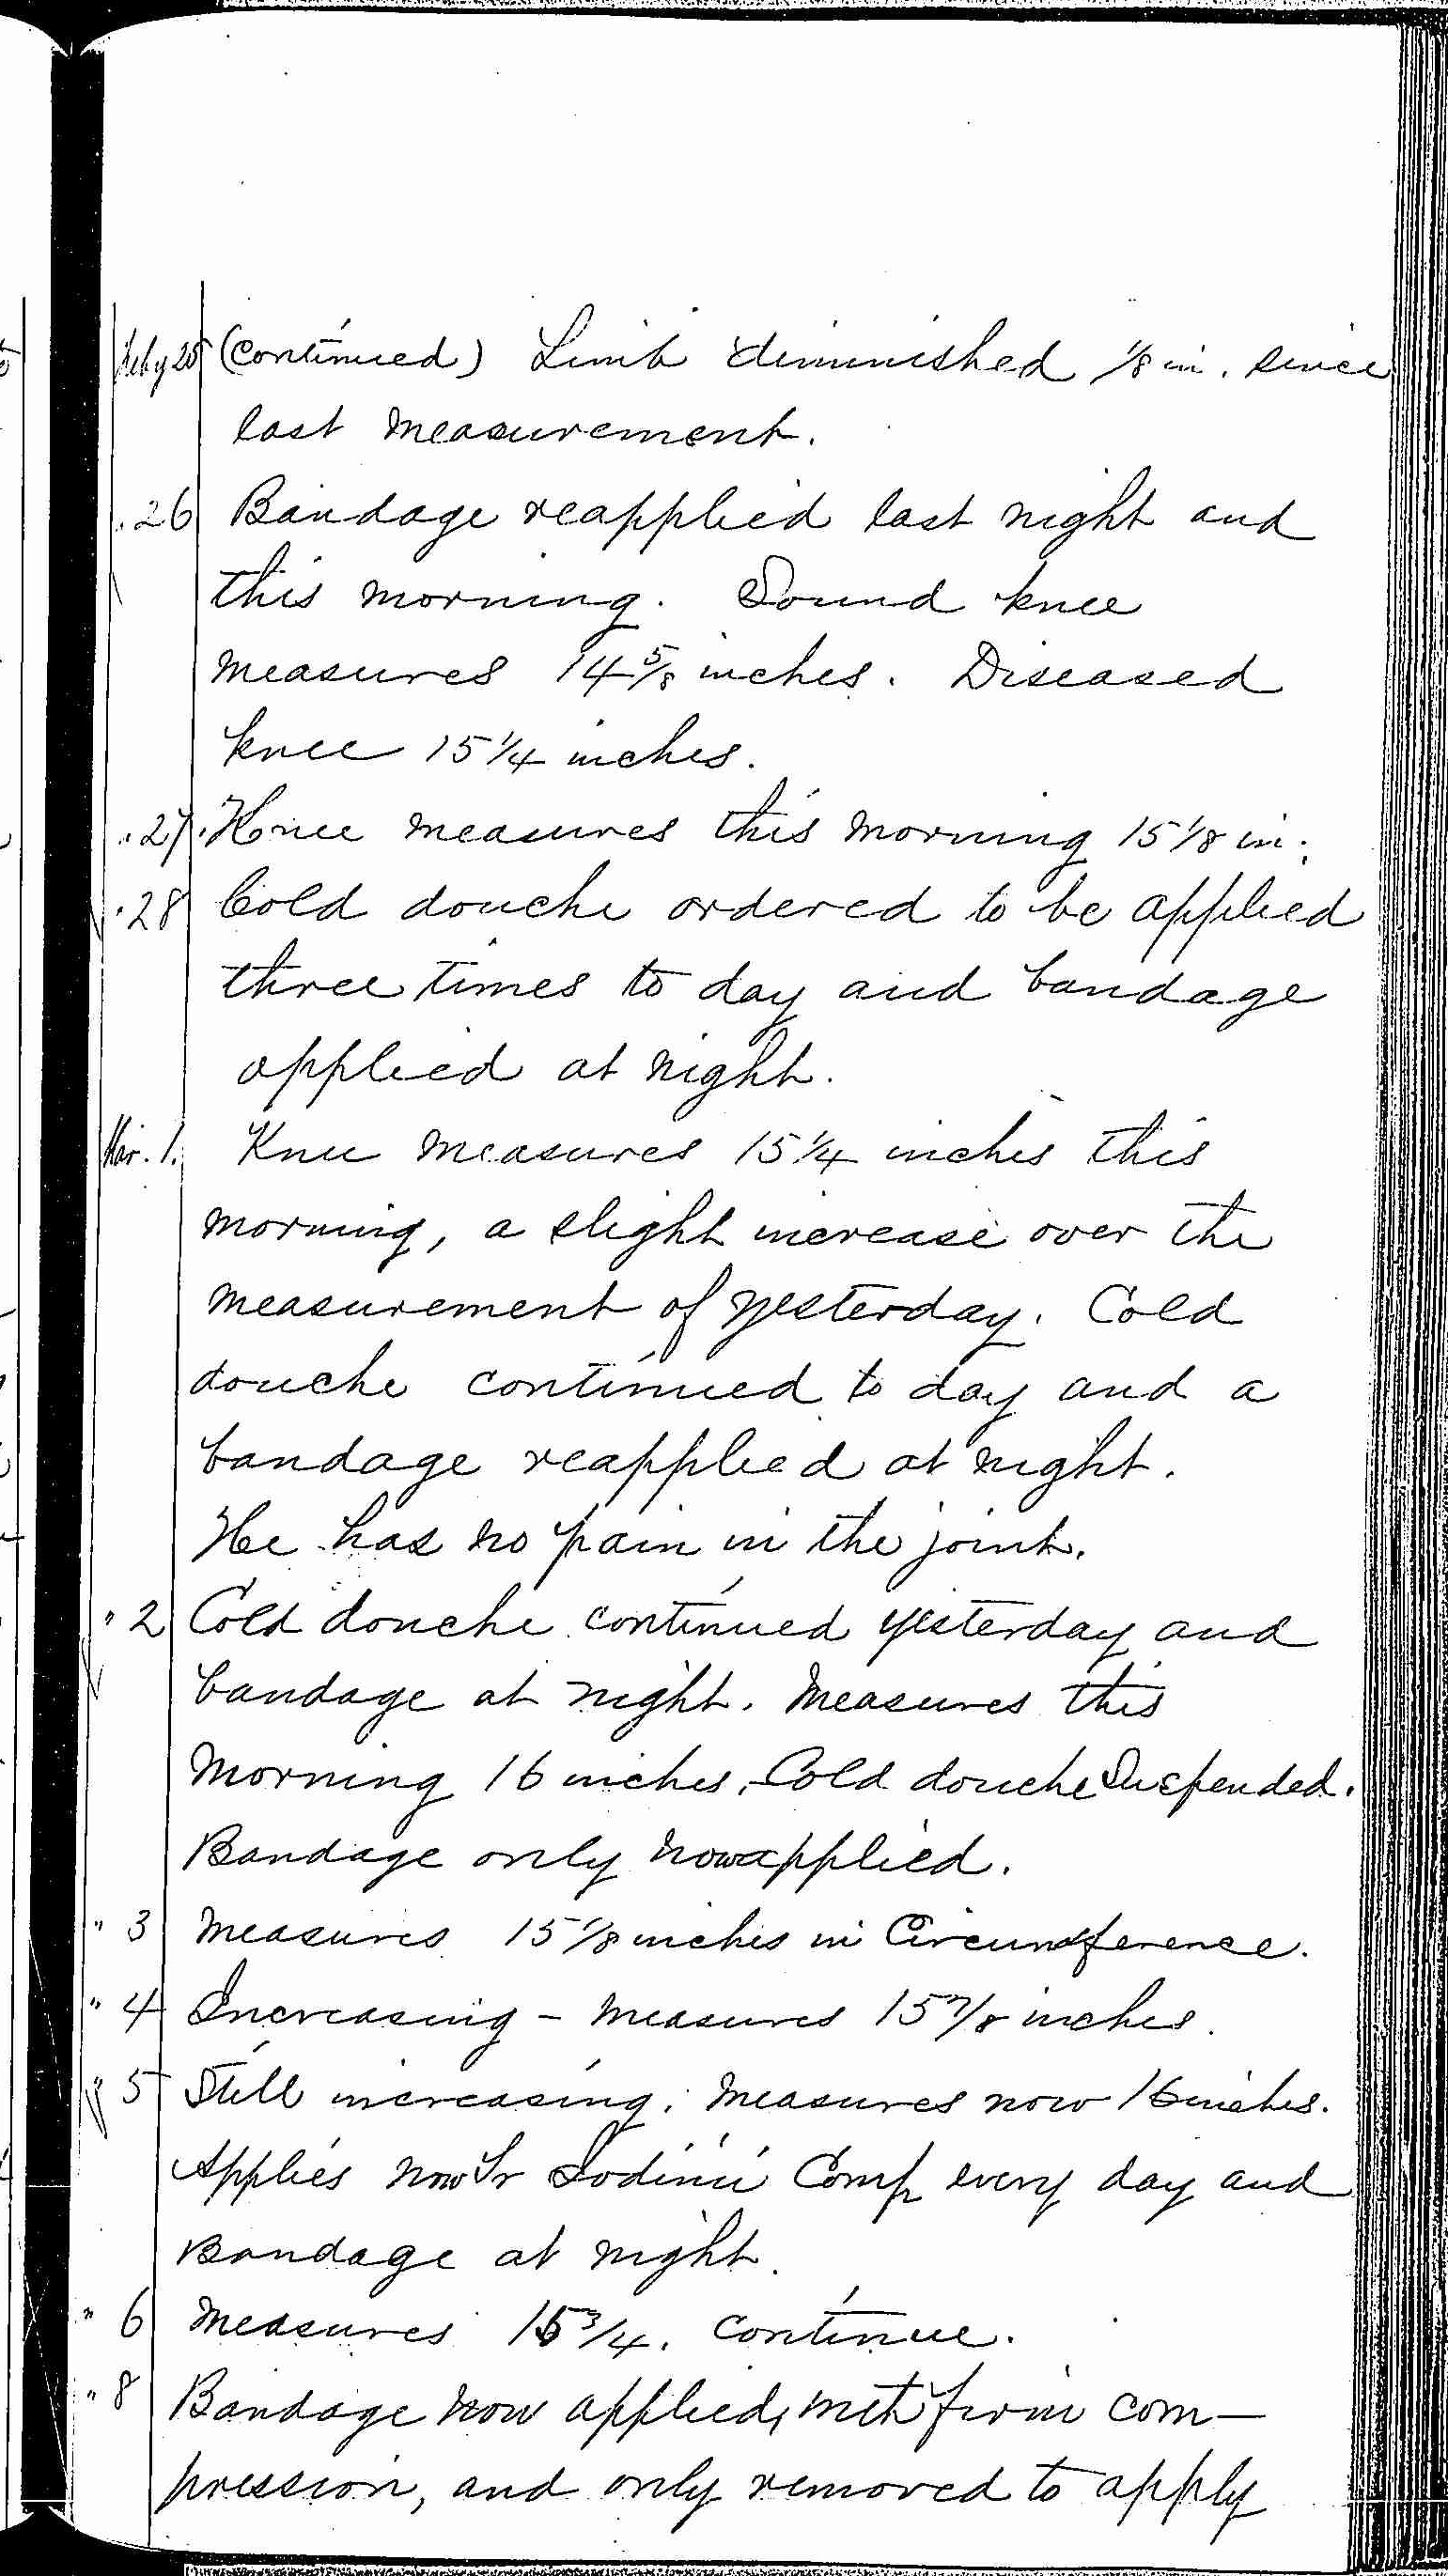 Feby 25 (continued) Limb diminished 1/8 in. since
last measurement.
" 26 Bandage reapplied last night and
this morning. Sound knee
measures 14 5/8 inches. Diseased
knee 15 1/4 inches.
" 27. Knee measures this morning 15 1/8 in.
" 28 Cold douche ordered to be applied
three times to day and bandage
applied at night.
Mar. 1. Knee measures 15 1/4 inches this
morning, a slight increase over the
measurement of yesterday. Cold
douche continued to day and a
bandage reapplied at night.
He has no pain in the joint.
" 2 Cold douche continued yesterday and
bandage at night. Measures this
morning 16 inches. Cold douche Suspended.
Bandage only now applied.
" 3 Measures 15 1/8 inches in Circumference.
" 4 Increasing - Measures 15 7/8 inches.
" 5 Still increasing; Measures now 16 inches.
Applies now Tr Iodinii Comp every day and
Bandage at night.
" 6 Measures 15 3/4. Continue.
" 8 Bandage now applied, with firm com-
pression, and only removed to apply